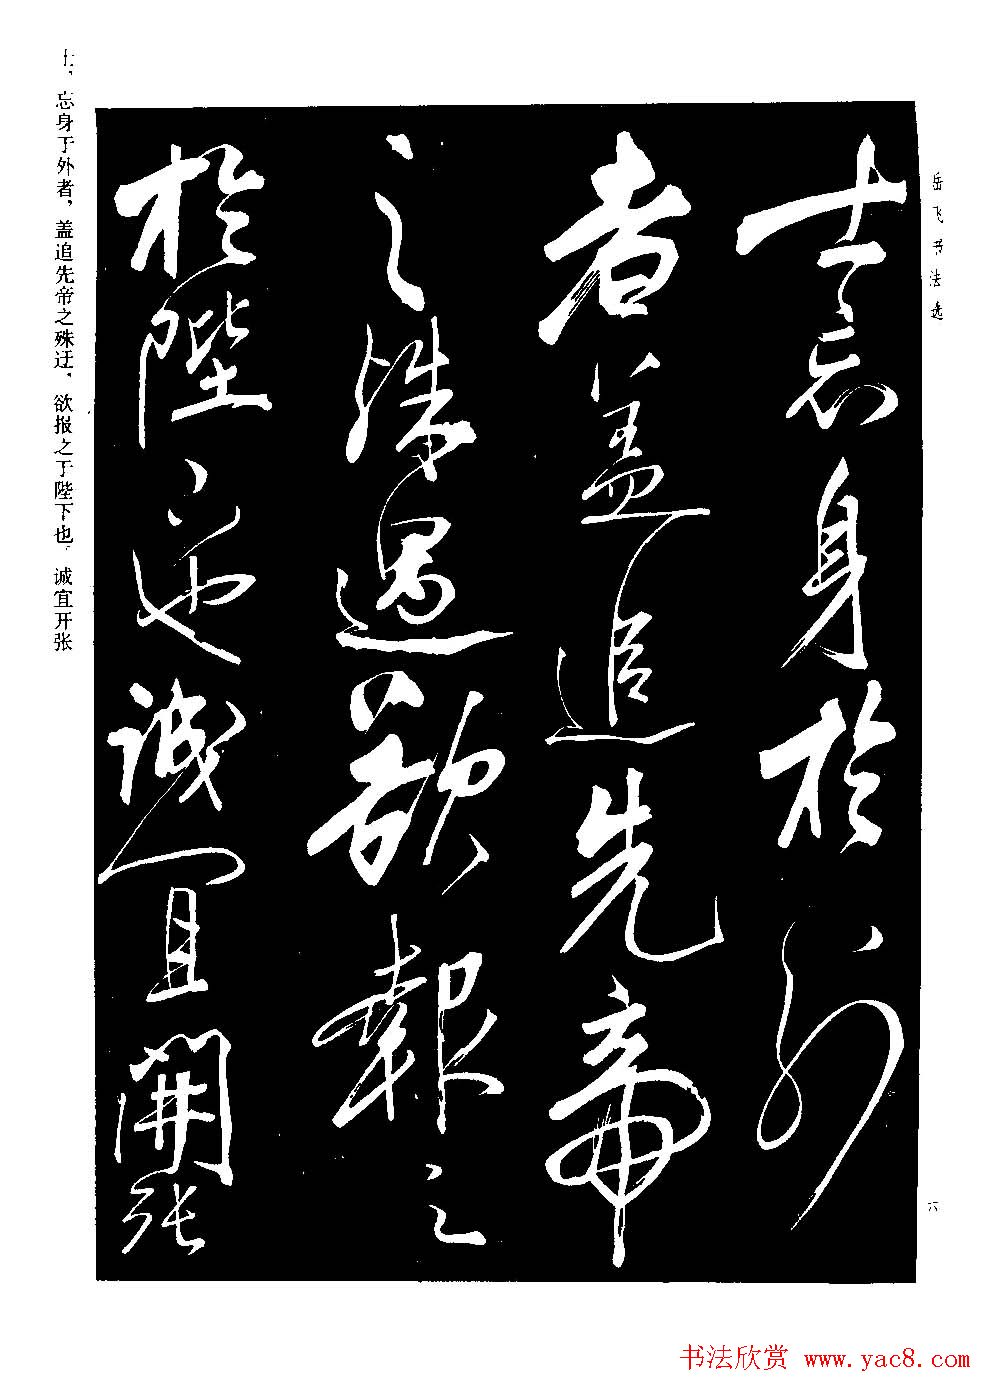 岳飞书法选
士忘身於外
者盖追先帝
之殊遇欲報之
於陛下也誠宜開張
士，忘身于外者，盖追先帝之殊迂，欲报之于陛下也。诚宜开张
六
书法欣赏 www.yac8.com